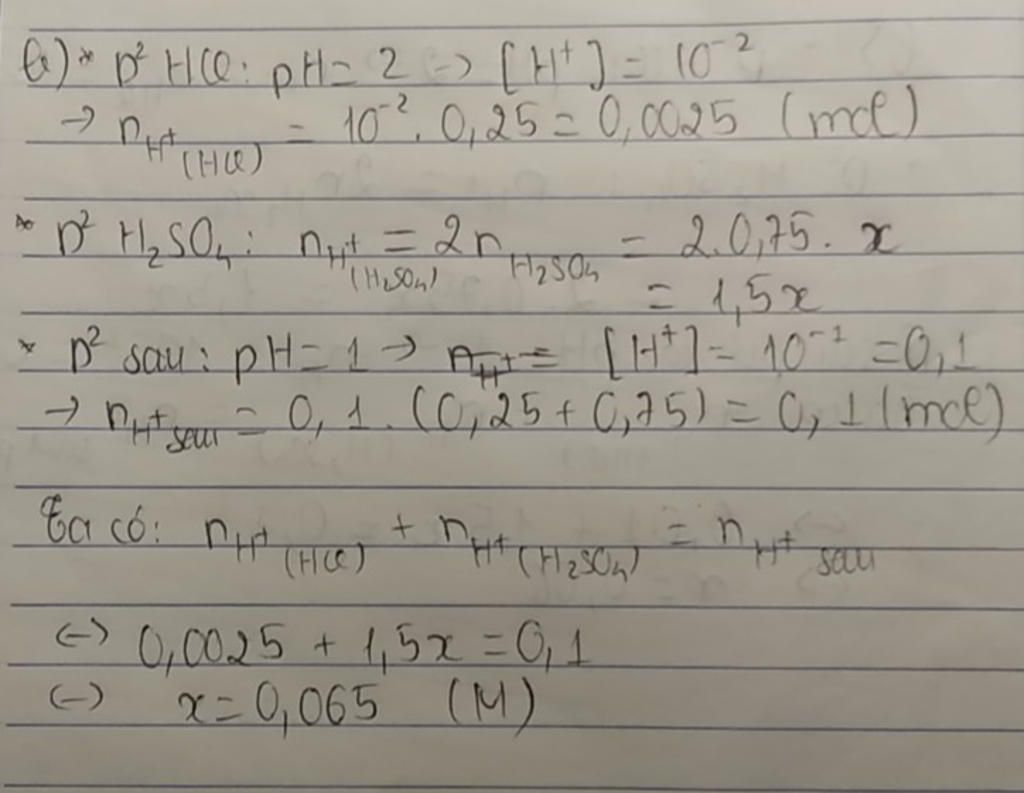 b) * D² HCl: pH = 2 -> [H⁺] = 10⁻²
-> n H⁺ (HCl) = 10⁻² . 0,25 = 0,0025 (mol)
* D² H₂SO₄: n H⁺ (H₂SO₄) = 2n H₂SO₄ = 2.0,75. x
= 1,5x
* D² sau: pH = 1 -> n H⁺ = [H⁺] = 10⁻¹ = 0,1
-> n H⁺ sau = 0,1 . (0,25 + 0,75) = 0,1 (mol)
Ta có: n H⁺ (HCl) + n H⁺ (H₂SO₄) = n H⁺ sau
<-> 0,0025 + 1,5x = 0,1
<-> x = 0,065 (M)